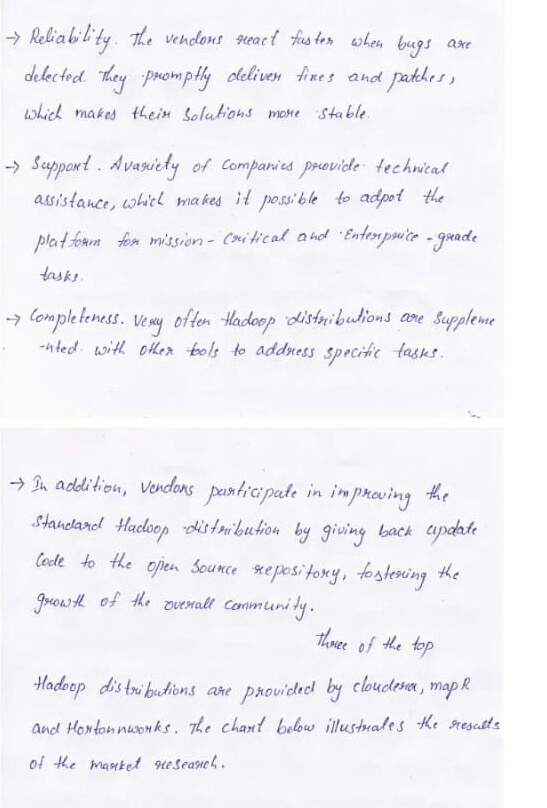 → Reliability. The vendors react faster when bugs are
detected. They promptly deliver fixes and patches,
which makes their solutions more stable.
→ Support. A variety of Companies provide technical
assistance, which makes it possible to adpot the
platform for mission - Critical and Enterprice - grade
tasks.
→ Completeness. Very often Hadoop distributions are Suppleme
-nted with other tools to address specific tasks.
→ In addition, Vendors participate in improving the
Standard Hadoop distribution by giving back update
Code to the open Source repository, fostering the
growth of the overall Community.
Three of the top
Hadoop distributions are provided by cloudera, mapR
and Hortonnworks. The chart below illustrates the results
of the market research.